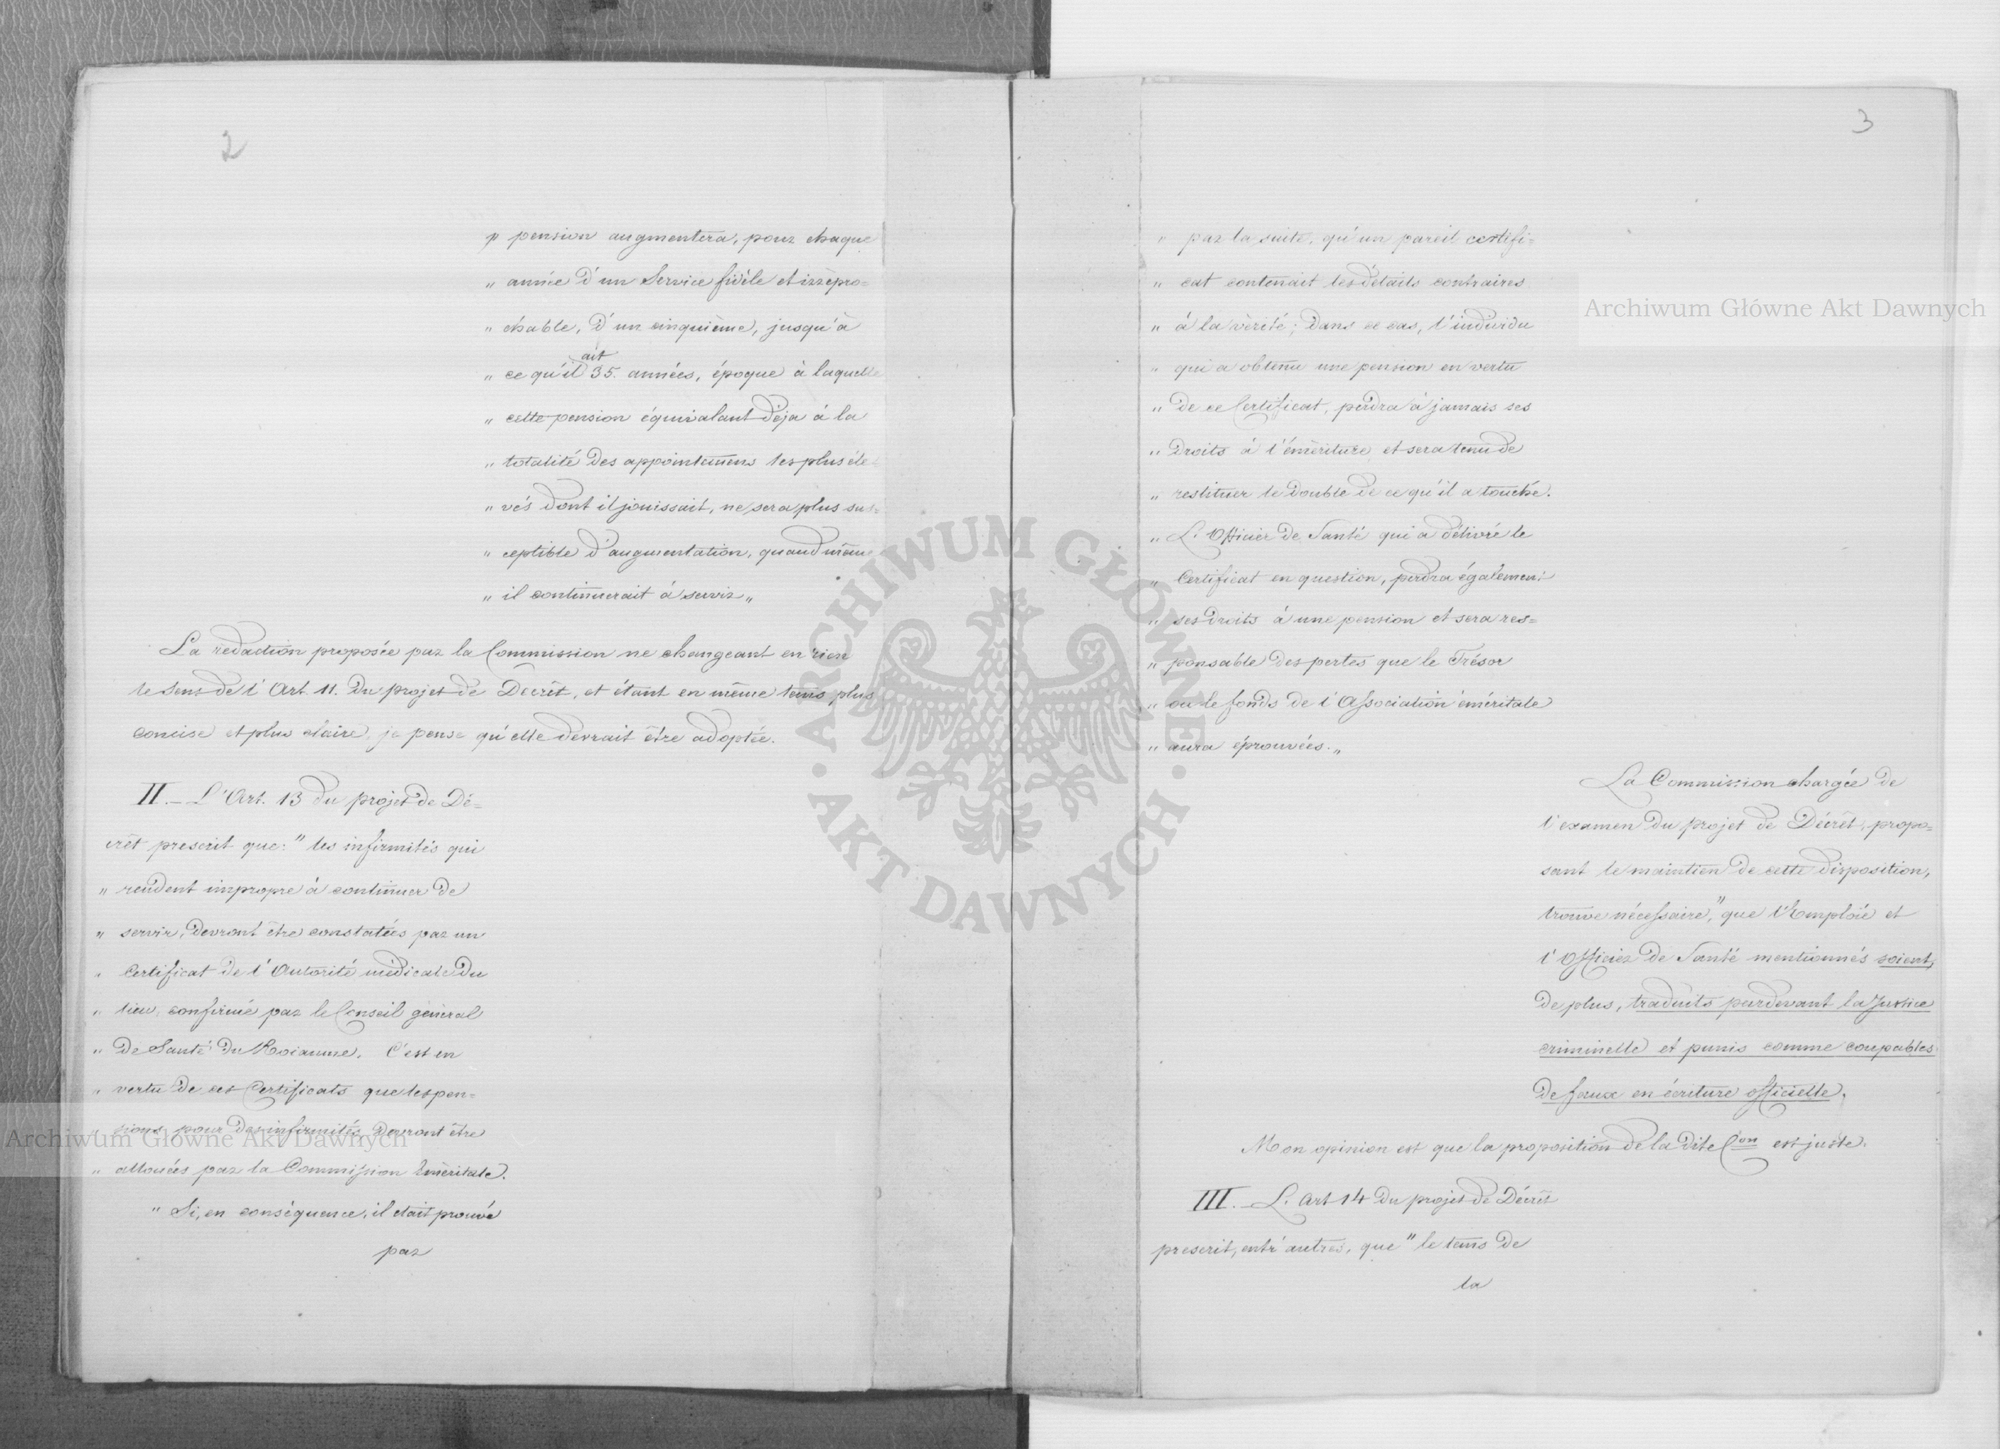 2
„ pension augmentera, pour chaque
„ année d'un Service fidèle et irrépro=
„ chable, d'un cinquième, jusqu'à
„ ce qu'il ait 35. années, époque à laquelle
„ cette pension équivalant déja à la
„ totalité des appointemens les plus éle=
„ vés dont il jouissait, ne sera plus sus=
„ ceptible d'augmentation, quand même
„ il continuerait à servir„
La rédaction proposée par la Commission ne changeant en rien
le sens de l'Art. 11. du projet de Décrèt, et étant en même tems plus
concise et plus claire, je pense qu'elle devrait être adoptée.
II. – L'Art. 13 du projet de Dé=
crèt prescrit que: „ les infirmités qui
„ rendent impropre à continuer de
„ servir, devront être constatées par un
„ Certificat de l'Autorité médicale du
„ lieu, confirmé par le Conseil général
„ de Santé du Roiaume. C'est en
„ vertu de ces Certificats que les pen=
„ sions pour des infirmités devront être
„ allouées par la Commission Eméritale.
„ Si, en conséquence, il était prouvé
par
3
„ par la suite, qu'un pareil certifi=
„ cat contenait les détails contraires
„ à la vérité; dans ce cas, l'individu
„ qui a obtenu une pension en vertu
„ de ce Certificat, perdra à jamais ses
„ droits à l'émériture et sera tenu de
„ restituer le double de ce qu'il a touché.
„ L'Officier de Santé qui a délivré le
„ Certificat en question, perdra également
„ ses droits à une pension et sera res=
„ ponsable des pertes que le Trésor
„ ou le fonds de l'Association éméritale
„ aura éprouvées.„
La Commission chargée de
l'examen du projet de Décrèt, propo=
sant le maintien de cette disposition,
trouve nécessaire, „ que l'Emploié et
l'Officier de Santé mentionnés soient,
de plus, traduits pardevant la Justice
criminelle et punis comme coupables
de faux en écriture officielle.
Mon opinion est que la proposition de la dite Con est juste.
III. – L'Art 14 du projet de Décrèt
prescrit, entr'autres, que „ le tems de
la
Archiwum Główne Akt Dawnych
Archiwum Główne Akt Dawnych
ARCHIWUM GŁÓWNE AKT DAWNYCH